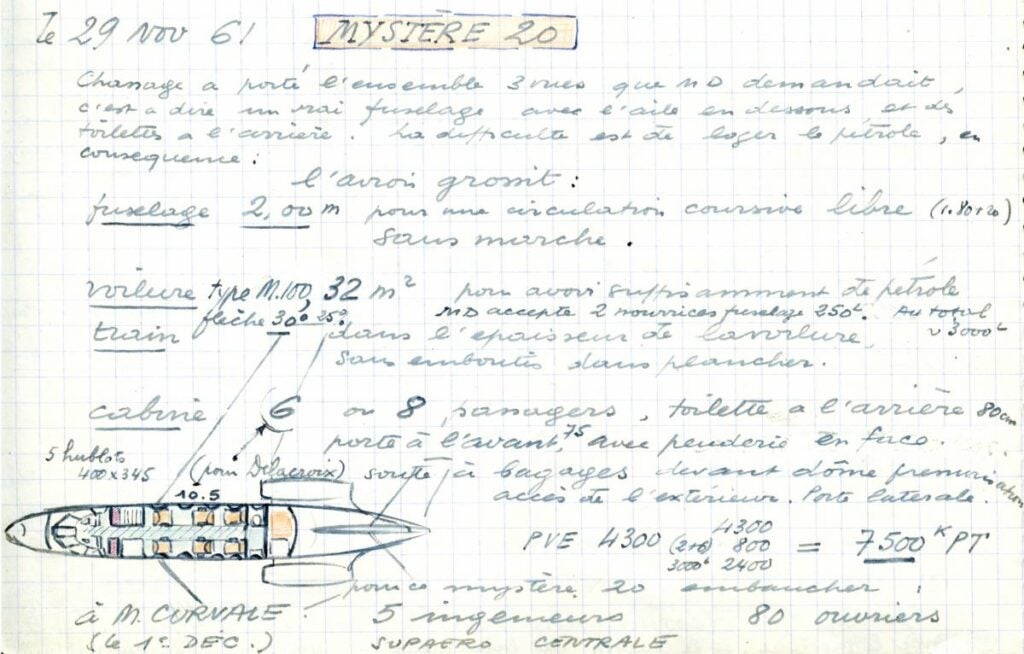 le 29 NOV 61
MYSTÈRE 20
Chassage a porté l'ensemble 3 vues que MD demandait,
c'est a dire un vrai fuselage avec l'aile en dessous et des
toilettes a l'arrière. La difficulte est de loger le pétrole, en
consequence:
l'avion grossit:
fuselage 2,00m pour une circulation coursive libre (1.80+20)
sans marche.
voilure type M.100, 32 m² pour avoir suffisamment de pétrole
flèche 30° 25° MD accepte 2 nourrices fuselage 250L. Au total
~ 3000L
train dans l'epaisseur de la voilure,
sans emboutis dans plancher.
cabine 6 ou 8 passagers, toilette a l'arrière 80cm
porte à l'avant, 75 avec penderie en face.
5 hublots
400x345
(pour Delacroix) soute à bagages devant dôme pressurisation
accès de l'extérieur. Porte laterale.
10.5
PVE 4300 4300
(2+6) 800 = 7500 K PT
3000L 2400
pour ce mystère 20 embaucher:
à M. CURVALE 5 ingenieurs 80 ouvriers
(le 1er DEC.) SUPAERO CENTRALE